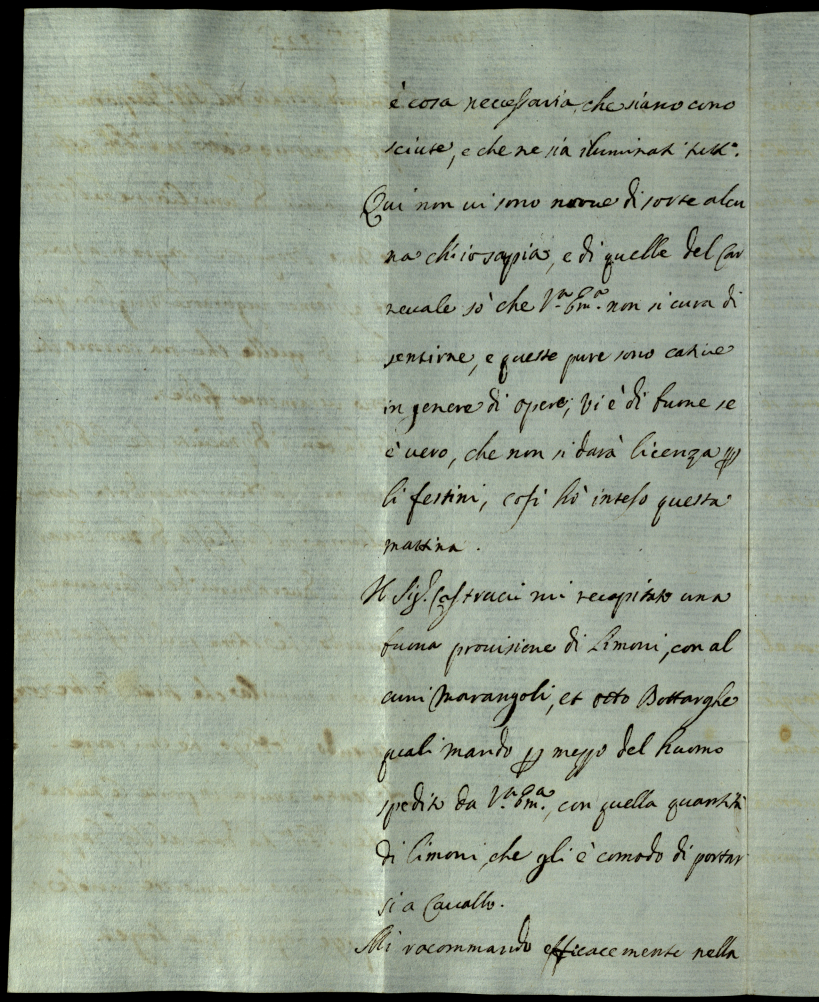 è cosa necessaria, che siano cono
sciute, e che ne sia iluminati tutt.ⁱ
Qui non ui sono nuoue di sorte alcu
na ch'io sappia, e di quelle del Car
neuale sò che V.ᵃ Em.ᵃ non si cura di
sentirne, e queste pure sono catiue
in genere di opere; Vi è di buone se
è uero, che non si darà licenza p
li festini, cosi hò inteso questa
mattina.
Il Sig.ʳ Castrucci mi recapitato una
buona prouisione di Limoni, con al
cuni Marangoli, et otto Bottarghe
quali mando p mezzo del huomo
spedito da V.ᵃ Em.ᵃ, con quella quantità
di Limoni che gli è comodo di portar
si a Cauallo.
Mi racommando efficacemente nella